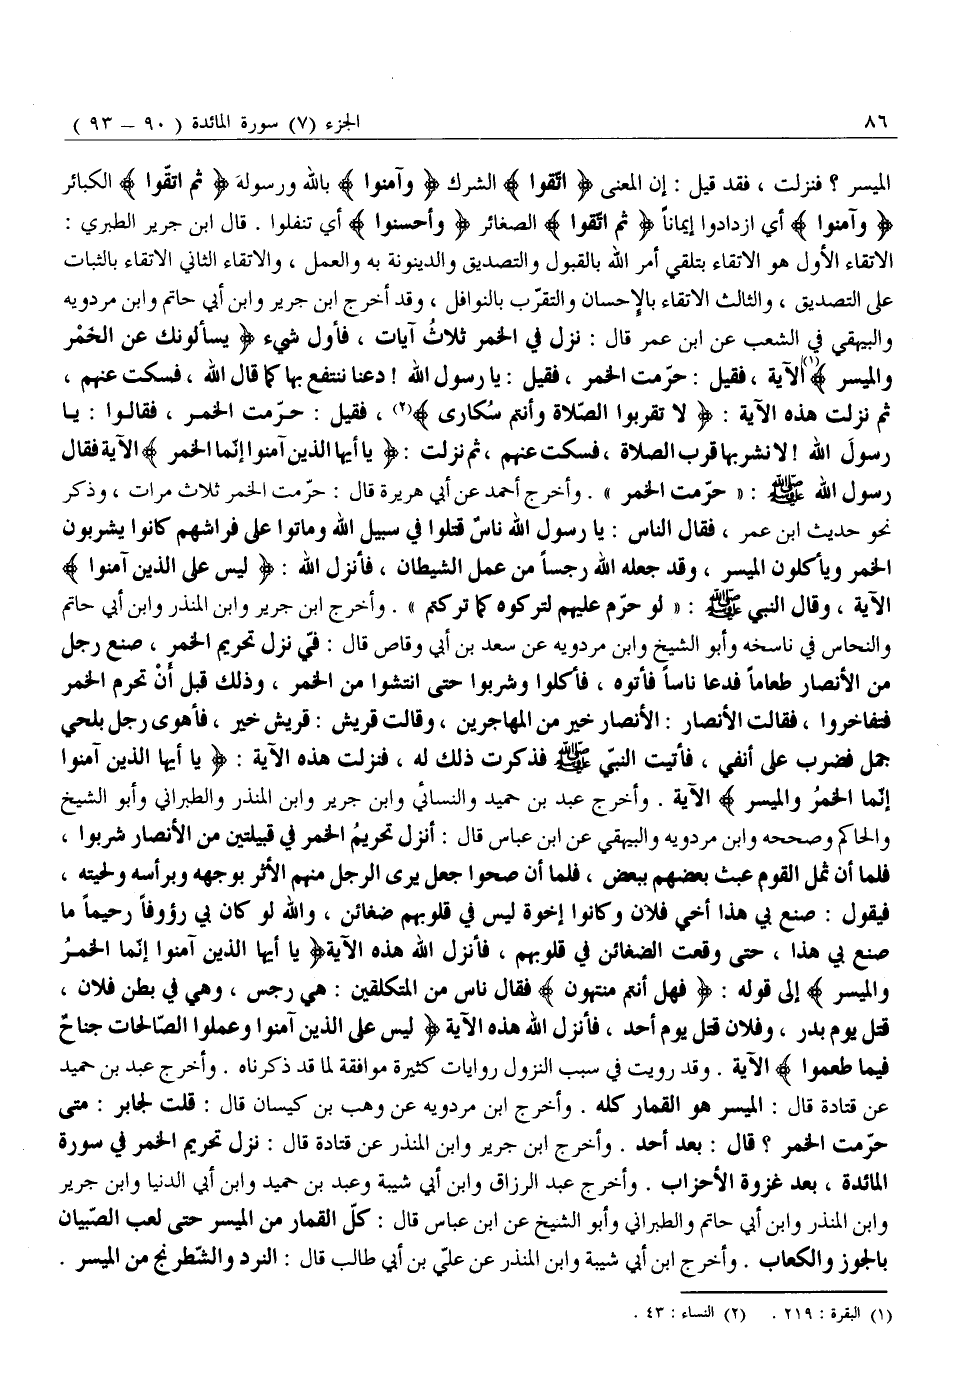 ٨٦
الجزء (٧) سورة المائدة ( ٩٠ – ٩٣ )
الميسر ؟ فنزلت ، فقد قيل : إن المعنى ﴿ اتّقوا ﴾ الشرك ﴿ وآمنوا ﴾ بالله ورسوله ﴿ ثم اتقّوا ﴾ الكبائر
﴿ وآمنوا ﴾ أي ازدادوا إيماناً ﴿ ثم اتّقوا ﴾ الصغائر ﴿ وأحسنوا ﴾ أي تنفلوا . قال ابن جرير الطبري :
الاتقاء الأول هو الاتقاء بتلقي أمر الله بالقبول والتصديق والدينونة به والعمل ، والاتقاء الثاني الاتقاء بالثبات
على التصديق ، والثالث الاتقاء بالإحسان والتقرّب بالنوافل ، وقد أخرج ابن جرير وابن أبي حاتم وابن مردويه
والبيهقي في الشعب عن ابن عمر قال : نزل في الخمر ثلاثُ آيات ، فأول شيء ﴿ يسألونك عن الخَمْر
والميسر ﴾(١) الآية ، فقيل : حرّمت الخمر ، فقيل : يا رسول الله ! دعنا ننتفع بها كما قال الله ، فسكت عنهم ،
ثم نزلت هذه الآية : ﴿ لا تقربوا الصّلاة وأنتم سُكارى ﴾(٢) ، فقيل : حرّمت الخمر ، فقالوا : يا
رسولَ الله ! لا نشربها قرب الصلاة ، فسكت عنهم ، ثم نزلت : ﴿ يا أيها الذين آمنوا إنّما الخمر ﴾ الآية فقال
رسول الله ﷺ : « حرّمت الخمر » . وأخرج أحمد عن أبي هريرة قال : حرّمت الخمر ثلاث مرات ، وذكر
نحو حديث ابن عمر ، فقال الناس : يا رسول الله ناسٌ قتلوا في سبيل الله وماتوا على فراشهم كانوا يشربون
الخمر ويأكلون الميسر ، وقد جعله الله رجساً من عمل الشيطان ، فأنزل الله : ﴿ ليس على الذين آمنوا ﴾
الآية ، وقال النبي ﷺ : « لو حرّم عليهم لتركوه كما تركتم » . وأخرج ابن جرير وابن المنذر وابن أبي حاتم
والنحاس في ناسخه وأبو الشيخ وابن مردويه عن سعد بن أبي وقاص قال : فيّ نزل تحريم الخمر ، صنع رجل
من الأنصار طعاماً فدعا ناساً فأتوه ، فأكلوا وشربوا حتى انتشوا من الخمر ، وذلك قبل أنْ تحرم الخمر
فتفاخروا ، فقالت الأنصار : الأنصار خير من المهاجرين ، وقالت قريش : قريش خير ، فأهوى رجل بلحي
جمل فضرب على أنفي ، فأتيت النبّي ﷺ فذكرت ذلك له ، فنزلت هذه الآية : ﴿ يا أيها الذين آمنوا
إنّما الخمرُ والميسر ﴾ الآية . وأخرج عبد بن حميد والنسائي وابن جرير وابن المنذر والطبراني وأبو الشيخ
والحاكم وصححه وابن مردويه والبيهقي عن ابن عباس قال : أنزل تحريمُ الخمر في قبيلتين من الأنصار شربوا ،
فلما أن ثمل القوم عبث بعضهم ببعض ، فلما أن صحوا جعل يرى الرجل منهم الأثر بوجهه وبرأسه ولحيته ،
فيقول : صنع بي هذا أخي فلان وكانوا إخوة ليس في قلوبهم ضغائن ، والله لو كان بي رؤوفاً رحيماً ما
صنع بي هذا ، حتى وقعت الضغائن في قلوبهم ، فأنزل الله هذه الآية﴿ يا أيها الذين آمنوا إنّما الخمرُ
والميسر ﴾ إلى قوله : ﴿ فهل أنتم منتهون ﴾ فقال ناس من المتكلفين : هي رجس ، وهي في بطن فلان ،
قتل يوم بدر ، وفلان قتل يوم أحد ، فأنزل الله هذه الآية ﴿ ليس على الذين آمنوا وعملوا الصّالحات جناحٌ
فيما طعموا ﴾ الآية . وقد رويت في سبب النزول روايات كثيرة موافقة لما قد ذكرناه . وأخرج عبد بن حميد
عن قتادة قال : الميسر هو القمار كله . وأخرج ابن مردويه عن وهب بن كيسان قال : قلت لجابر : متى
حرّمت الخمر ؟ قال : بعد أحد . وأخرج ابن جرير وابن المنذر عن قتادة قال : نزل تحريم الخمر في سورة
المائدة ، بعد غزوة الأحزاب . وأخرج عبد الرزاق وابن أبي شيبة وعبد بن حميد وابن أبي الدنيا وابن جرير
وابن المنذر وابن أبي حاتم والطبراني وأبو الشيخ عن ابن عباس قال : كلّ القمار من الميسر حتى لعب الصّبيان
بالجوز والكعاب . وأخرج ابن أبي شيبة وابن المنذر عن عليّ بن أبي طالب قال : النرد والشّطرنج من الميسر .
(١) البقرة : ٢١٩ . (٢) النساء : ٤٣ .